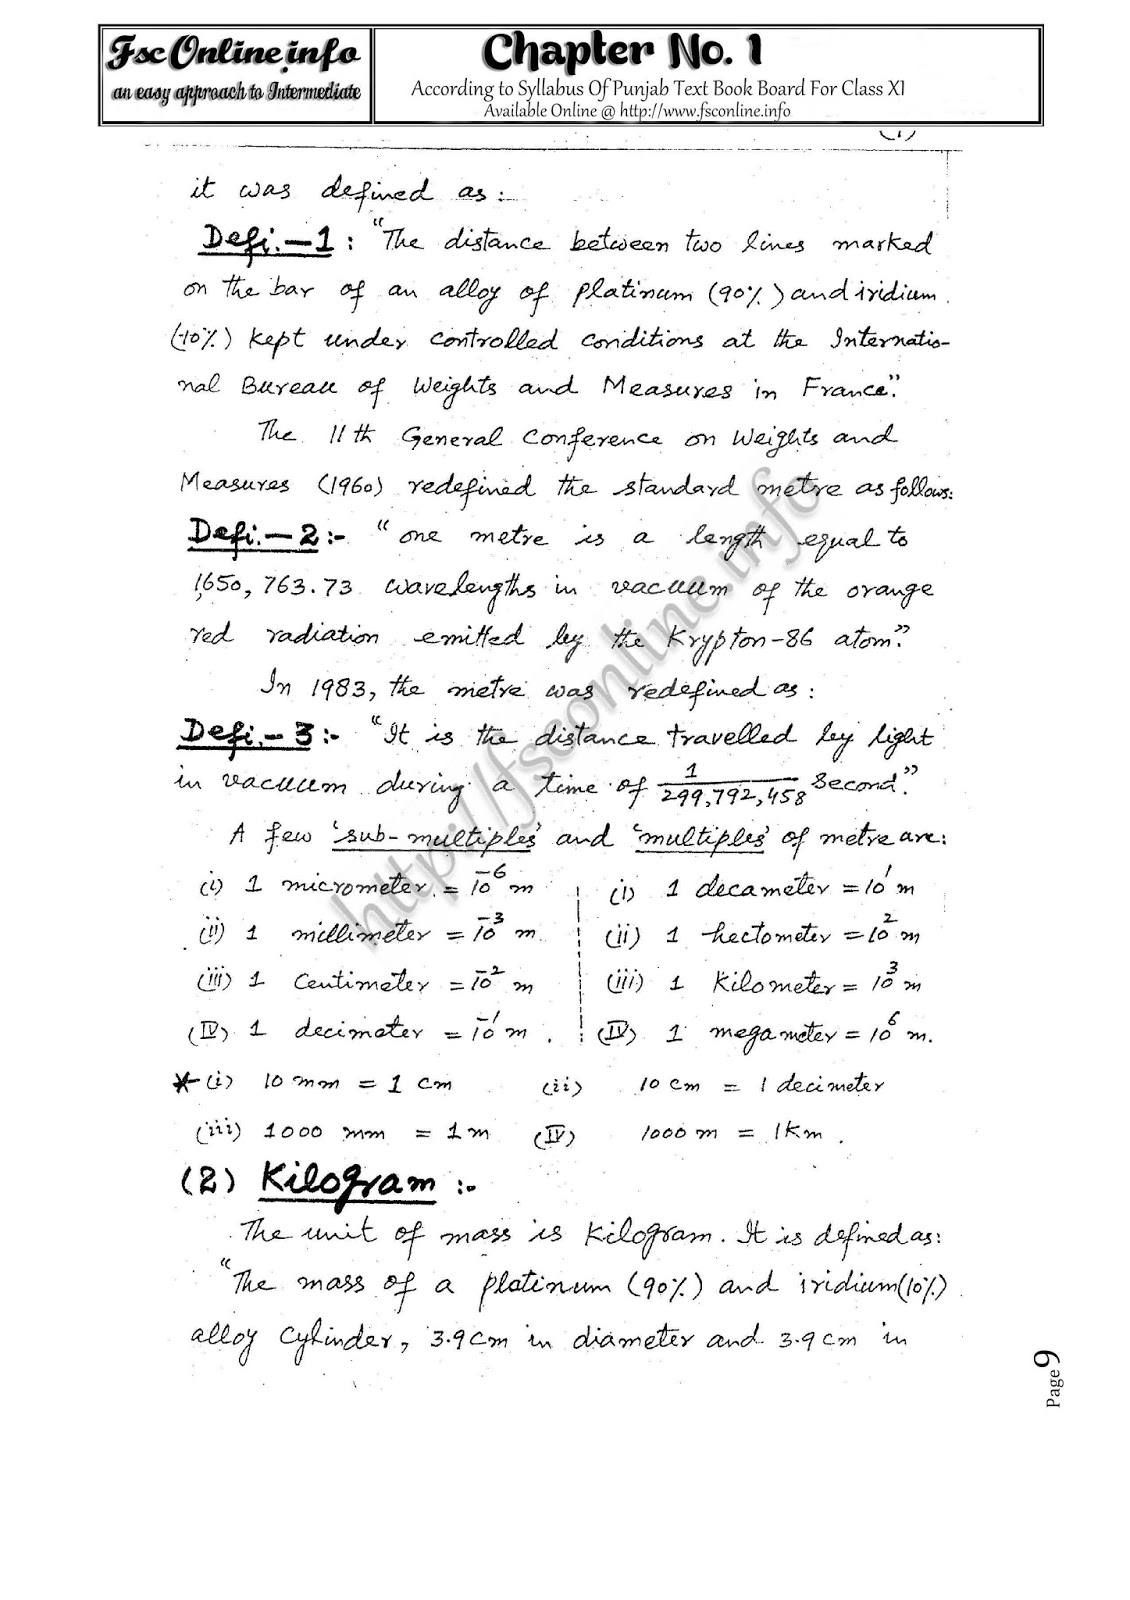 Fsc Online.info
an easy approach to Intermediate
Chapter No. 1
According to Syllabus Of Punjab Text Book Board For Class XI
Available Online @ http://www.fsconline.info
it was defined as:
Defi.-1: "The distance between two lines marked
on the bar of an alloy of platinum (90%) and iridium
(10%) kept under controlled conditions at the Internatio-
nal Bureau of Weights and Measures in France."
The 11th General Conference on Weights and
Measures (1960) redefined the standard metre as follows:
Defi.-2:- "one metre is a length equal to
1,650,763.73 wavelengths in vacuum of the orange
red radiation emitted by the Krypton-86 atom."
In 1983, the metre was redefined as:
Defi.-3:- "It is the distance travelled by light
in vacuum during a time of 1/299,792,458 second."
A few 'sub-multiples' and 'multiples' of metre are:
(i) 1 micrometer = 10⁻⁶ m (i) 1 decameter = 10¹ m
(ii) 1 millimeter = 10⁻³ m. (ii) 1 hectometer = 10² m
(iii) 1 Centimeter = 10⁻² m (iii) 1 Kilometer = 10³ m
(IV) 1 decimeter = 10⁻¹ m. (IV) 1 megameter = 10⁶ m.
* (i) 10 mm = 1 cm (ii) 10 cm = 1 decimeter
(iii) 1000 mm = 1 m (IV) 1000 m = 1 Km.
(2) Kilogram:-
The unit of mass is Kilogram. It is defined as:
"The mass of a platinum (90%) and iridium (10%)
alloy Cylinder, 3.9 cm in diameter and 3.9 cm in
Page 9
http://fsconline.info